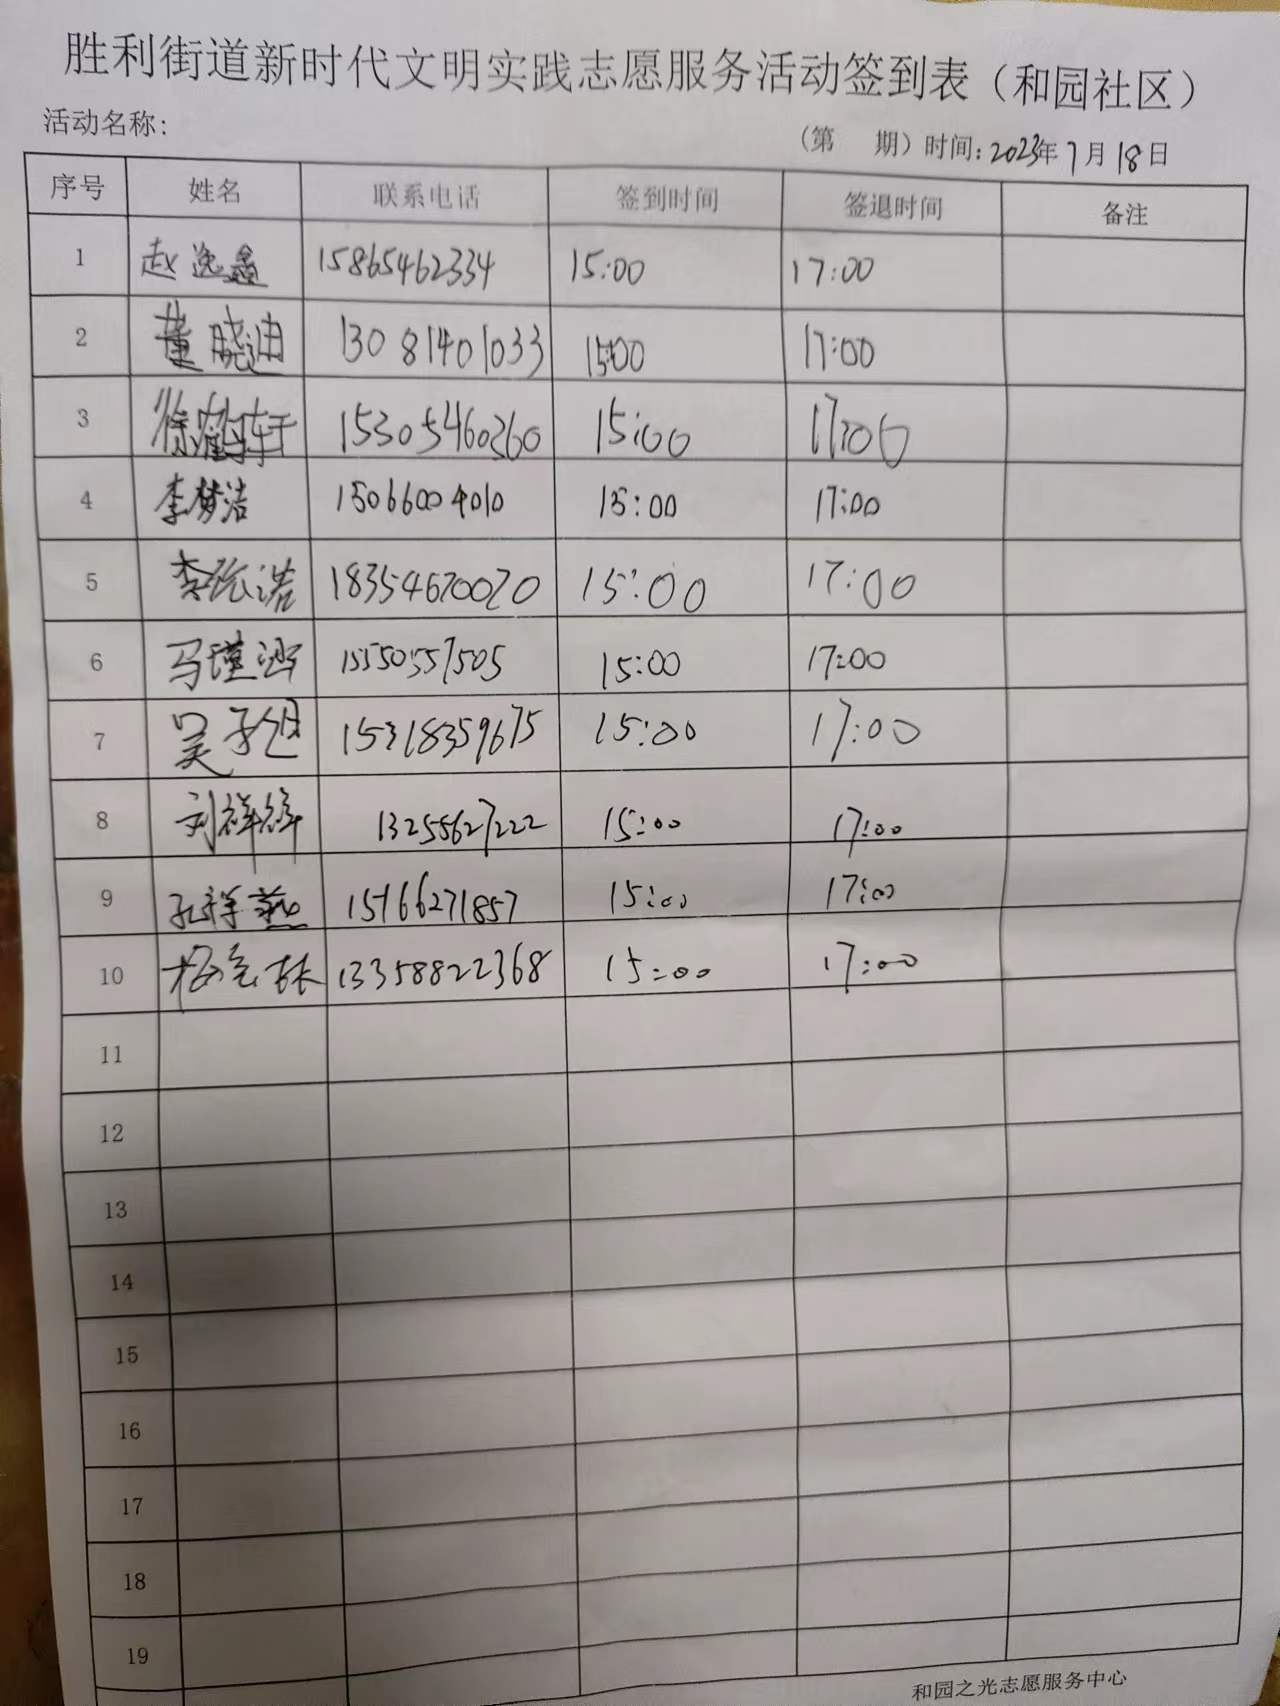 胜利街道新时代文明实践志愿服务活动签到表（和园社区）
活动名称：
（第 期）时间：2023年7月18日
序号 姓名 联系电话 签到时间 签退时间 备注
1 赵逸鑫 15865462334 15:00 17:00
2 董晓迪 13081401033 15:00 17:00
3 徐鹤轩 15305460260 15:00 17:00
4 李梦洁 15066004010 15:00 17:00
5 李浩 18354670070 15:00 17:00
6 马瑾涵 15550557505 15:00 17:00
7 吴子旭 15318359675 15:00 17:00
8 刘祥祥 13255627222 15:00 17:00
9 孔祥燕 15166271857 15:00 17:00
10 林 13358822368 15:00 17:00
11
12
13
14
15
16
17
18
19
和园之光志愿服务中心